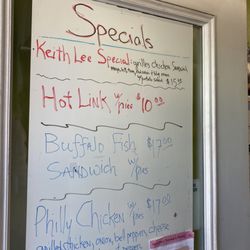 Specials
Keith Lee Special: grilles chicken Sandwich
$15.00
Hot Link w/fries $10.00
Buffalo Fish $17.00
Sandwich w/fries
Philly Chicken w/fries $17.00
grilled chicken, onion, bell peppers, cheese